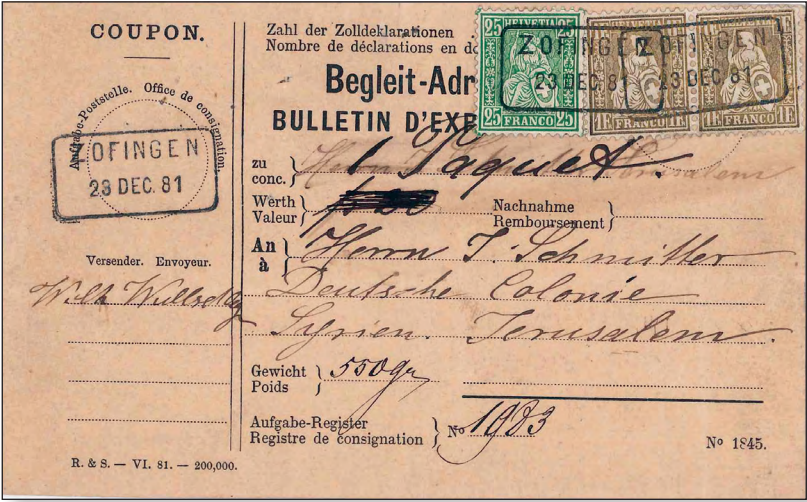 COUPON.
Aufgabe-Poststelle. Office de consignation.
ZOFINGEN
23 DEC. 81
Versender. Envoyeur.
R. & S. — VI. 81. — 200,000.
Zahl der Zolldeklarationen
Nombre de déclarations en do
25 HELVETIA 25
25 FRANCO 25
HELVETIA
1F FRANCO 1F
HELVETIA
1F FRANCO 1F
ZOFINGEN
23 DEC. 81
ZOFINGEN
23 DEC 81
Begleit-Adr
BULLETIN D'EXP
zu
conc. } 1 Paquet.
Werth
Valeur }
Nachnahme
Remboursement }
An
à } Herrn J. Schmitter
Deutsche Colonie
Syrien. Jerusalem.
Gewicht
Poids } 550 gr
Aufgabe-Register
Registre de consignation } No 1983
No 1845.